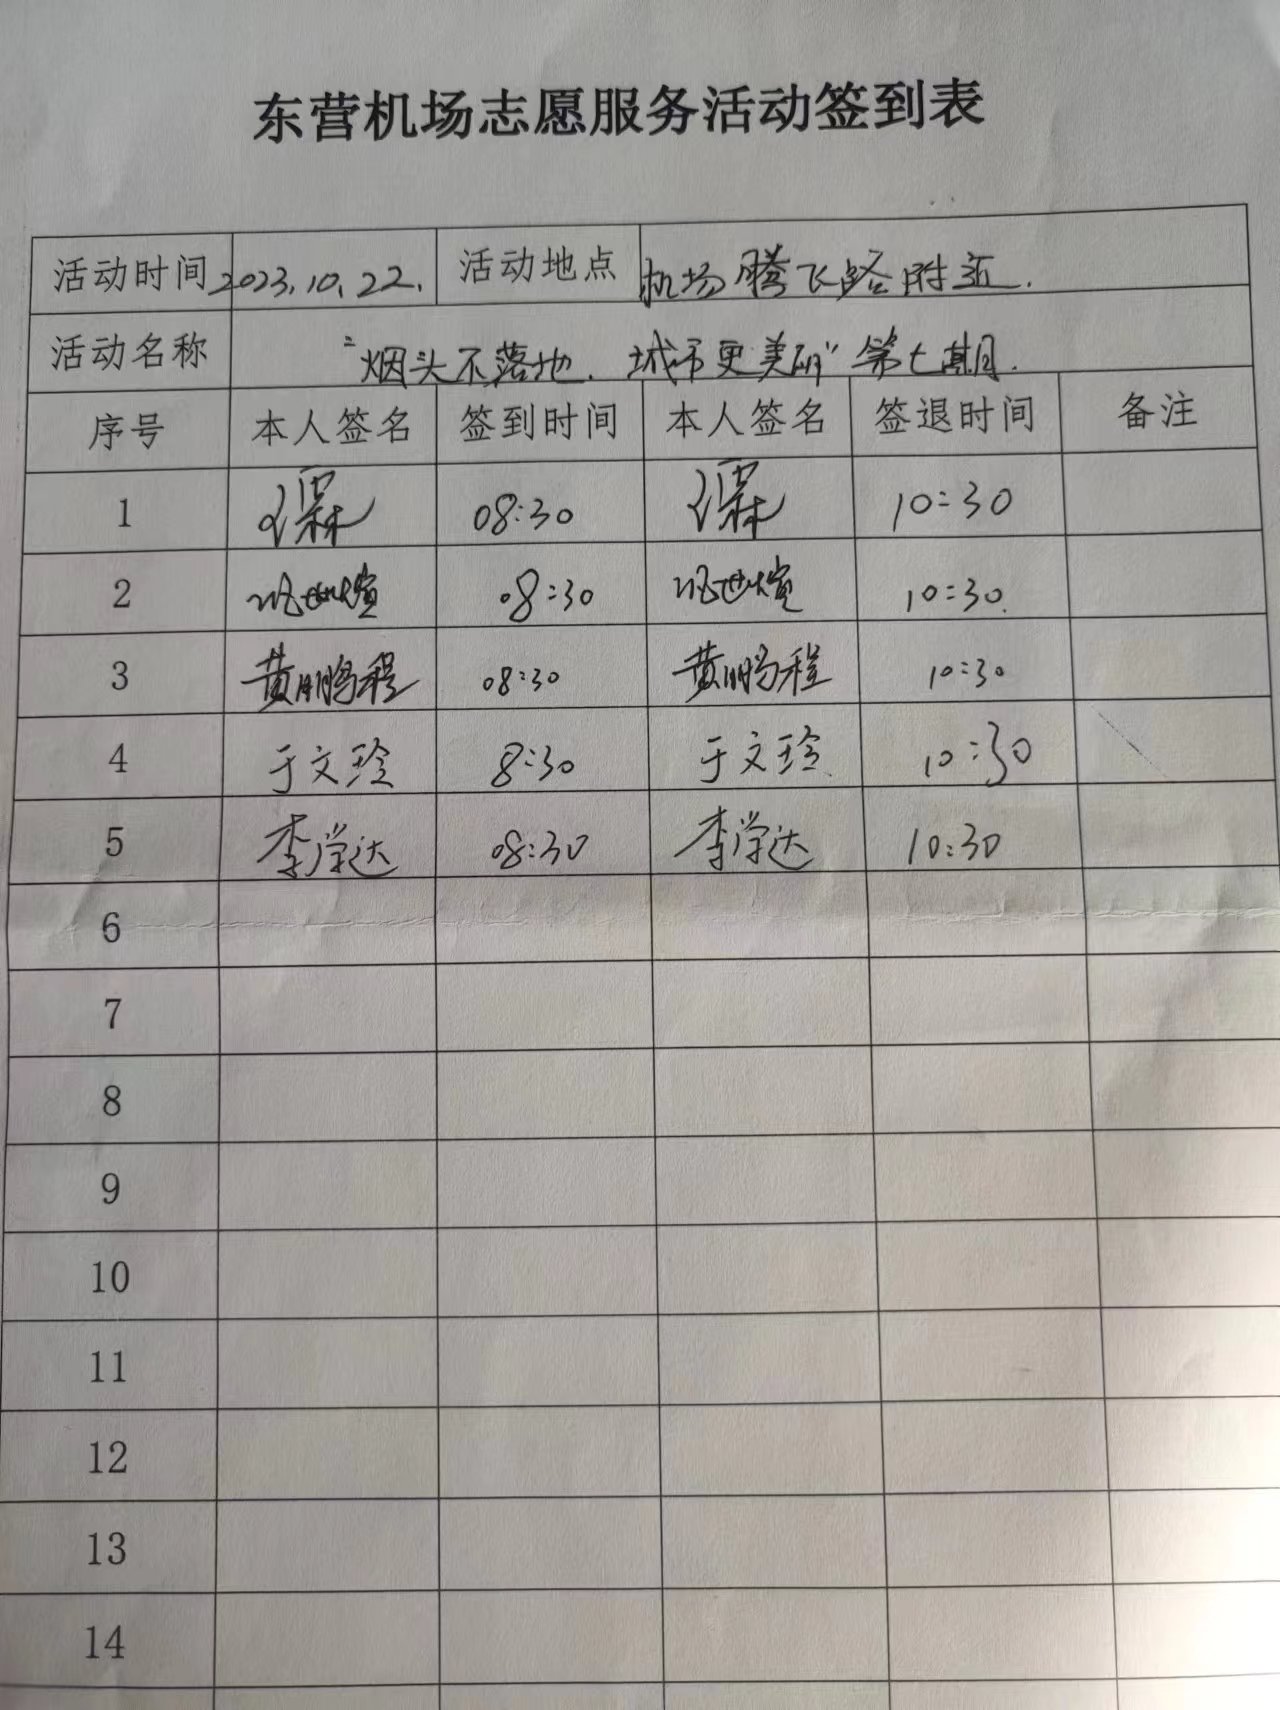 东营机场志愿服务活动签到表
活动时间 2023.10.22. 活动地点 机场腾飞路附近.
活动名称 "烟头不落地.城市更美丽"第七期.
序号 本人签名 签到时间 本人签名 签退时间 备注
1 08:30 10:30
2 08:30 10:30.
3 黄鹏程 08:30 黄鹏程 10:30
4 于文玲 8:30 于文玲 10:30
5 李学达 08:30 李学达 10:30
6
7
8
9
10
11
12
13
14